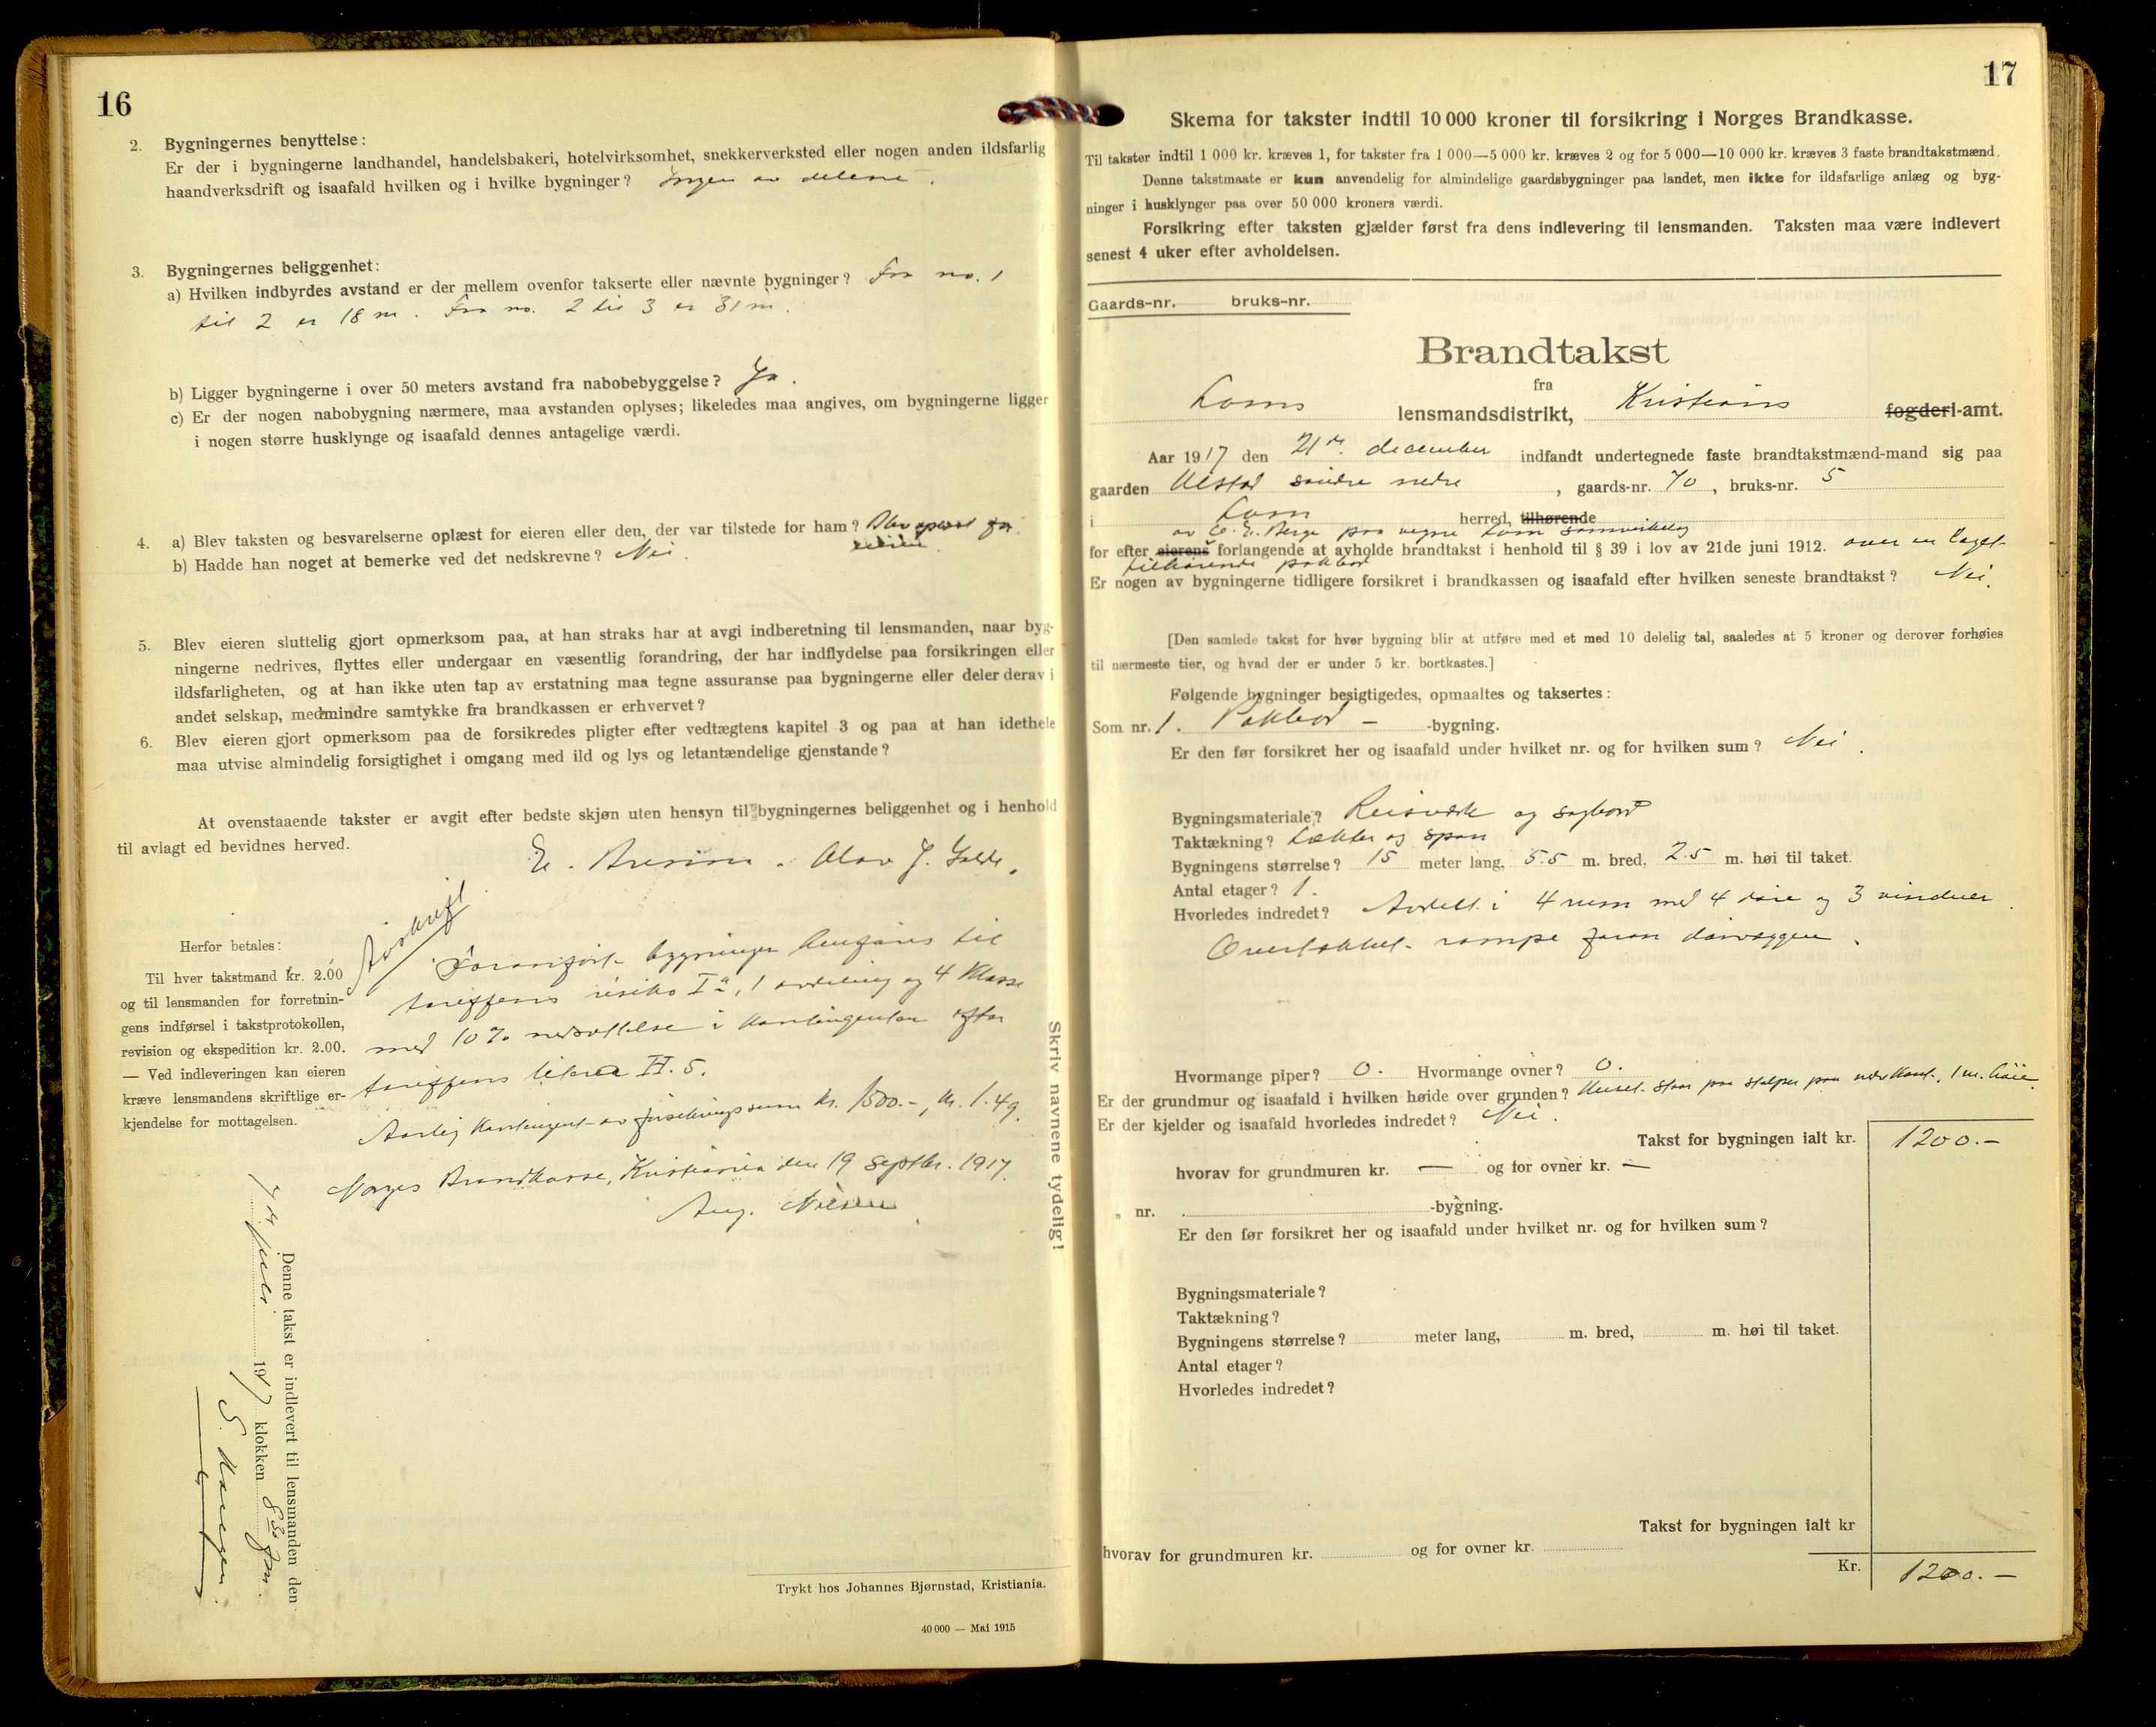 16
2. Bygningernes benyttelse:
Er der i bygningerne landhandel, handelsbakeri, hotelvirksomhet, snekkerverksted eller nogen anden ildsfarlig
haandverksdrift og isaafald hvilken og i hvilke bygninger? Ingen av delene.
3. Bygningernes beliggenhet:
a) Hvilken indbyrdes avstand er der mellem ovenfor takserte eller nævnte bygninger? Fra no. 1
til 2 er 18 m. Fra no. 2 til 3 er 31 m.
b) Ligger bygningerne i over 50 meters avstand fra nabobebyggelse? Ja.
c) Er der nogen nabobygning nærmere, maa avstanden oplyses; likeledes maa angives, om bygningerne ligger
i nogen større husklynge og isaafald dennes antagelige værdi.
4. a) Blev taksten og besvarelserne oplæst for eieren eller den, der var tilstede for ham? Blev oplæst for
eieren.
b) Hadde han noget at bemerke ved det nedskrevne? Nei.
5. Blev eieren sluttelig gjort opmerksom paa, at han straks har at avgi indberetning til lensmanden, naar byg-
ningerne nedrives, flyttes eller undergaar en væsentlig forandring, der har indflydelse paa forsikringen eller
ildsfarligheten, og at han ikke uten tap av erstatning maa tegne assuranse paa bygningerne eller deler derav i
andet selskap, medmindre samtykke fra brandkassen er erhvervet?
6. Blev eieren gjort opmerksom paa de forsikredes pligter efter vedtægtens kapitel 3 og paa at han idethele
maa utvise almindelig forsigtighet i omgang med ild og lys og letantændelige gjenstande?
At ovenstaaende takster er avgit efter bedste skjøn uten hensyn til bygningernes beliggenhet og i henhold
til avlagt ed bevidnes herved.
Olav J. Galde.
Avskrift
Herfor betales:
Til hver takstmand kr. 2.00
og til lensmanden for forretnin-
gens indførsel i takstprotokollen,
revision og ekspedition kr. 2.00.
— Ved indleveringen kan eieren
kræve lensmandens skriftlige er-
kjendelse for mottagelsen.
Foranførte bygninger henføres til
tariffens risiko Ia, 1 avdeling og 4 Klasse
med 10 % nedsættelse i kontingenten efter
tariffens litera H. 5.
Aarlig kontingent av forsikringssum kr. 1500.-, kr. 1.49.
Norges Brandkasse, Kristiania den 19 septbr. 1917.
Aug. Nilsen
Denne takst er indlevert til lensmanden den
juli 1917 klokken 8 30 fm.
Skriv navnene tydelig!
Trykt hos Johannes Bjørnstad, Kristiania.
40 000 — Mai 1915
17
Skema for takster indtil 10 000 kroner til forsikring i Norges Brandkasse.
Til takster indtil 1 000 kr. kræves 1, for takster fra 1 000—5 000 kr. kræves 2 og for 5 000—10 000 kr. kræves 3 faste brandtakstmænd.
Denne takstmaate er kun anvendelig for almindelige gaardsbygninger paa landet, men ikke for ildsfarlige anlæg og byg-
ninger i husklynger paa over 50 000 kroners værdi.
Forsikring efter taksten gjælder først fra dens indlevering til lensmanden. Taksten maa være indlevert
senest 4 uker efter avholdelsen.
Gaards-nr. bruks-nr.
Brandtakst
fra
Loms lensmandsdistrikt, Kristians fogderi-amt.
Aar 1917 den 21de december indfandt undertegnede faste brandtakstmænd-mand sig paa
gaarden Ulstad søndre nedre, gaards-nr. 70, bruks-nr. 5
i Lom herred, tilhørende
av E. E. Berge paa vegne Lom samvirkelag
for efter eierens forlangende at avholde brandtakst i henhold til § 39 i lov av 21de juni 1912. over en laget
tilhørende pakbod
Er nogen av bygningerne tidligere forsikret i brandkassen og isaafald efter hvilken seneste brandtakst? Nei.
[Den samlede takst for hver bygning blir at utføre med et med 10 delelig tal, saaledes at 5 kroner og derover forhøies
til nærmeste tier, og hvad der er under 5 kr. bortkastes.]
Følgende bygninger besigtigedes, opmaaltes og taksertes:
Som nr. 1. Pakbod - -bygning.
Er den før forsikret her og isaafald under hvilket nr. og for hvilken sum? Nei.
Bygningsmateriale? Reisværk og sagbord
Taktækning? Lækter og spon
Bygningens størrelse? 15 meter lang, 5.5 m. bred, 2.5 m. høi til taket.
Antal etager? 1.
Hvorledes indredet? Avdelt i 4 rum med 4 døre og 3 vinduer.
Overbakket rampe foran dørvæggen.
Hvormange piper? 0. Hvormange ovner? 0.
Er der grundmur og isaafald i hvilken høide over grunden? Huset staar paa stolper paa nedre kant, 1 m. høie.
Er der kjelder og isaafald hvorledes indredet? Nei.
Takst for bygningen ialt kr. 1200.-
hvorav for grundmuren kr. — og for ovner kr. —
„ nr. -bygning.
Er den før forsikret her og isaafald under hvilket nr. og for hvilken sum?
Bygningsmateriale?
Taktækning?
Bygningens størrelse? meter lang, m. bred, m. høi til taket.
Antal etager?
Hvorledes indredet?
Takst for bygningen ialt kr
hvorav for grundmuren kr. og for ovner kr.
Kr. 1200.-